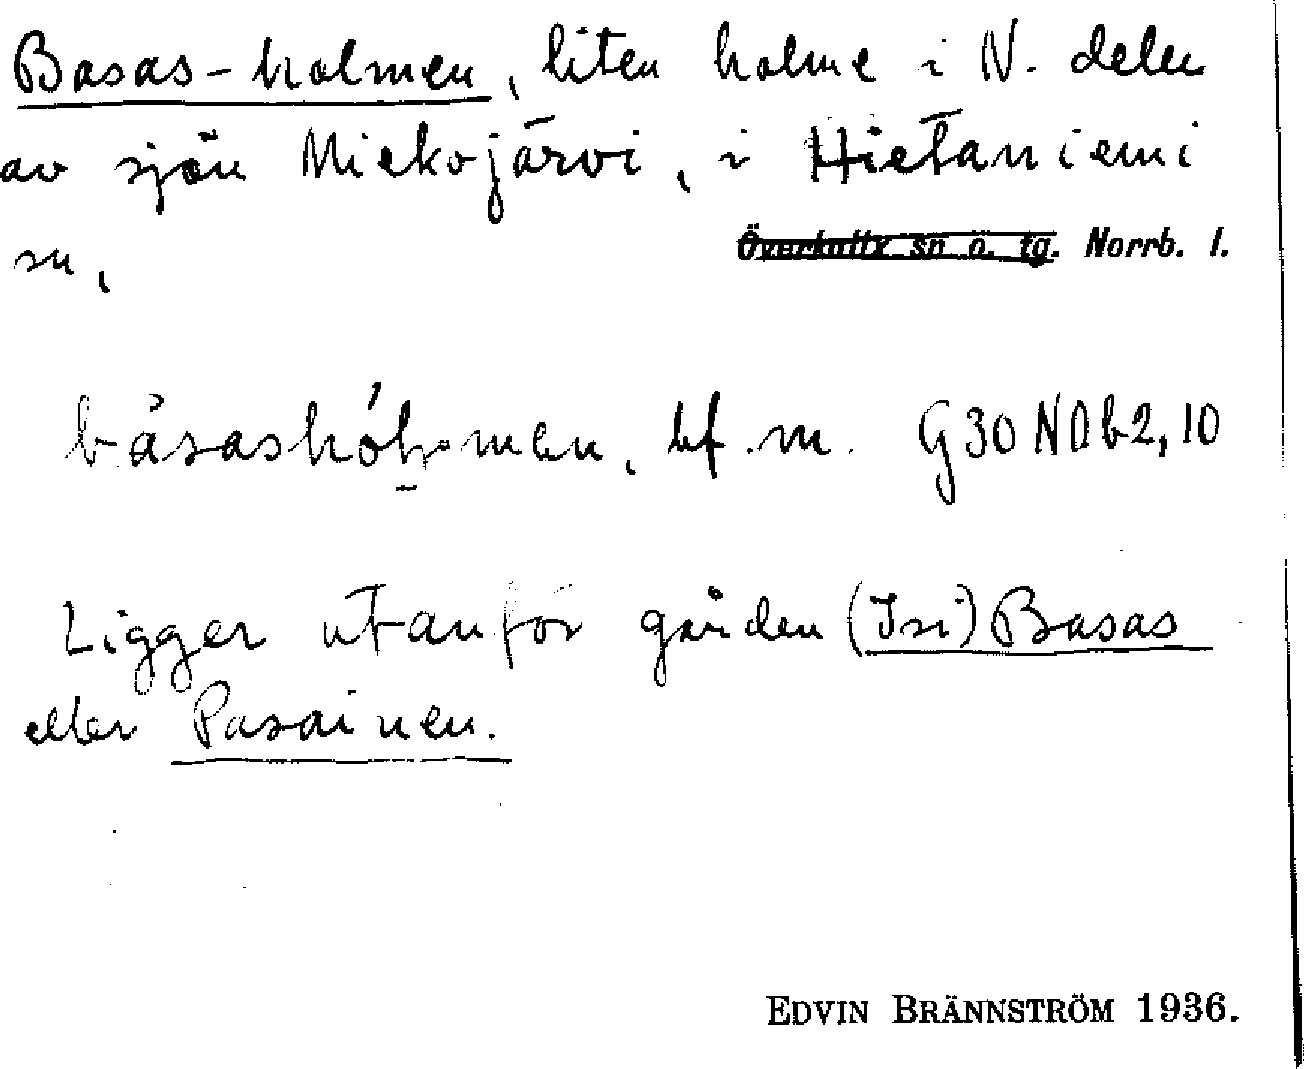 Basas-holmen, liten holme i N. delen
av sjön Miekojärvi, i Hietaniemi
sn,
Överkalix sn o. tg. Norrb. l.
básashól̥men, bf. m. G30 NDb2,10
Ligger utanför gården (Iso) Basas
eller Pasainen.
EDVIN BRÄNNSTRÖM 1936.